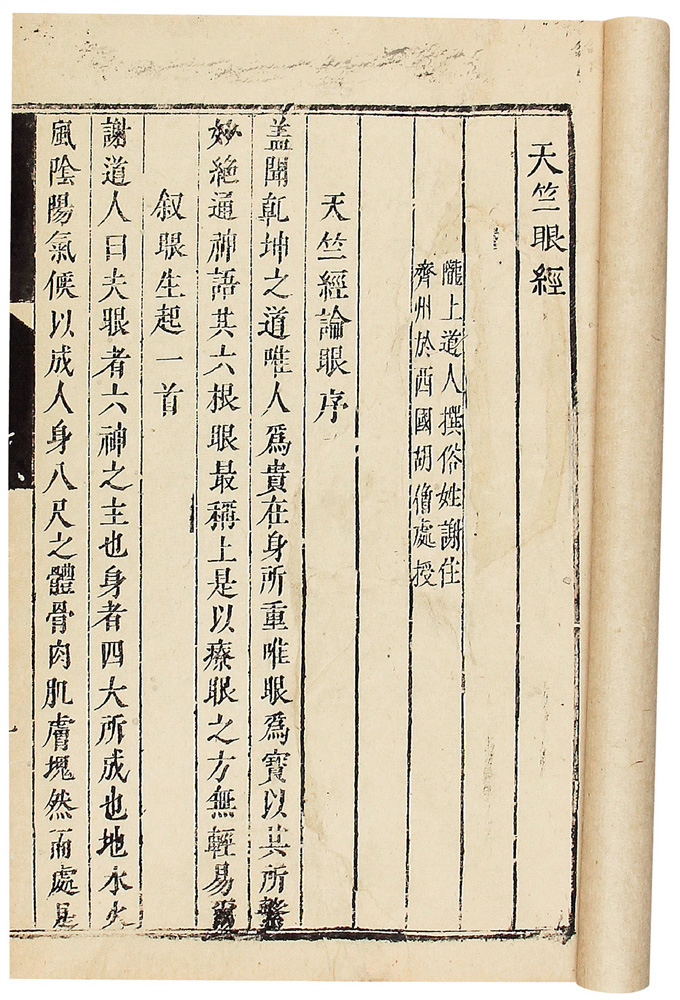 天竺眼經
隴上道人撰俗姓謝住
齊州於西國胡僧處授
天竺經論眼序
盖聞乹坤之道唯人爲貴在身所重唯眼爲寶以其所繫
妙絶通神語其六根眼最稱上是以療眼之方無輕易爾
叙眼生起一首
謝道人曰夫眼者六神之主也身者四大所成也地水火
風陰陽氣候以成人身八尺之體骨肉肌膚塊然而處是